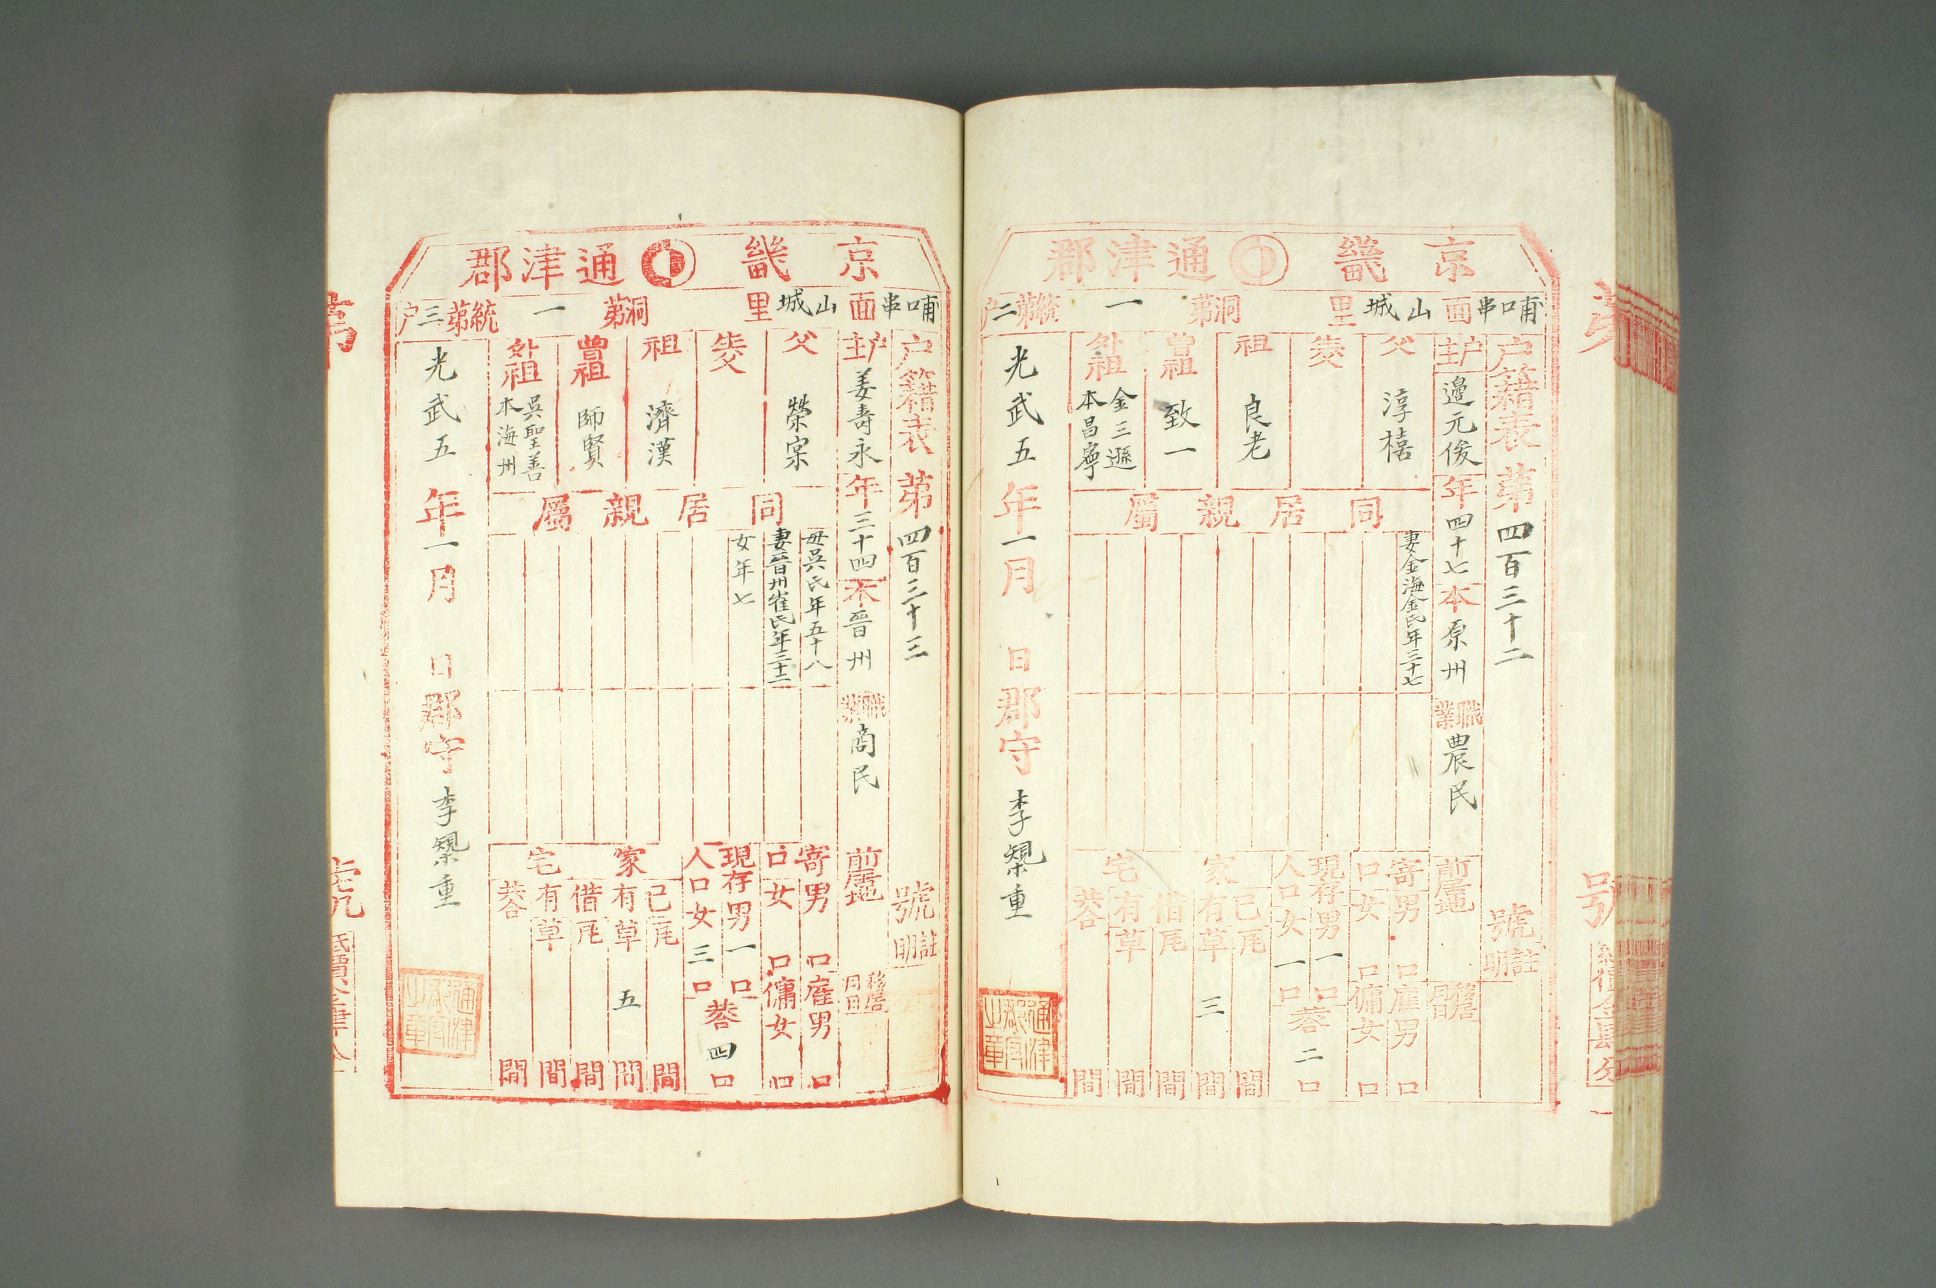 京畿 通津郡
哺口串面 山城里 洞第一 統第二户
户籍表 第四百三十二 號
註明
户主 邊元俊 年四十七 本原州 職業 農民 前居地 移居月日
父 淳橲
祖 良老
曾祖 致一
外祖 金三遜 本昌寧
同居親屬
妻金海金氏年三十七
寄口 男 口 女 口
雇男 口 傭女 口
現存人口 男一口 女一口 共二口
家宅
己有 瓦 間 草三間
借有 瓦 間 草 間
共 間
光武五年一月 日 郡守 李槼重
通津郡官之章
京畿 通津郡
哺口串面 山城里 洞第一 統第三户
户籍表 第四百三十三 號
註明
户主 姜壽永 年三十四 本晉州 職業 商民 前居地 移居月日
父 榮宗
祖 濟漢
曾祖 師賢
外祖 吳聖善 本海州
同居親屬
母吳氏年五十八
妻晉州崔氏年三十二
女年七
寄口 男 口 女 口
雇男 口 傭女 口
現存人口 男一口 女三口 共四口
家宅
己有 瓦 間 草五間
借有 瓦 間 草 間
共 間
光武五年一月 日 郡守 李槼重
通津郡官之章